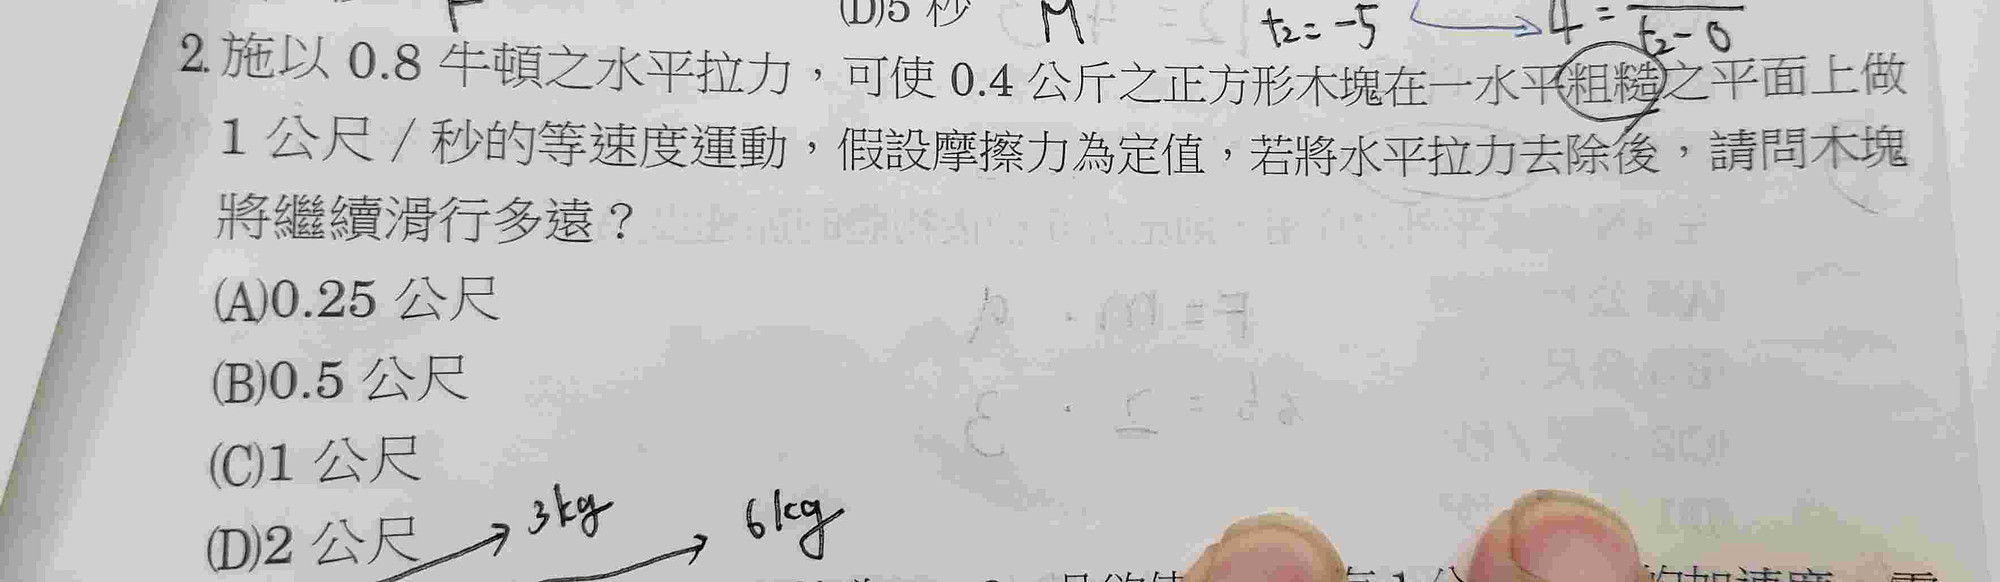 (D)5 秒 M t₂=-5 4=
t₂-0
2.施以 0.8 牛頓之水平拉力，可使 0.4 公斤之正方形木塊在一水平粗糙之平面上做
1 公尺/秒的等速度運動，假設摩擦力為定值，若將水平拉力去除後，請問木塊
將繼續滑行多遠？
(A)0.25 公尺
(B)0.5 公尺
(C)1 公尺
(D)2 公尺 3kg 6kg